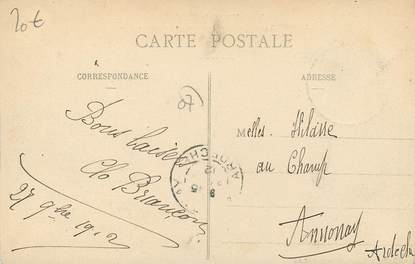 20€
CARTE POSTALE
CORRESPONDANCE
ADRESSE
07
Bons baisers
Clo Briançon
27 9bre 1912
Melles Hilaire
au Champ
Annonay
Ardèche